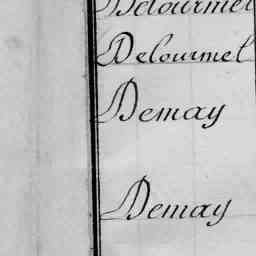 Delourmel
Delourmel
Demay
Demay